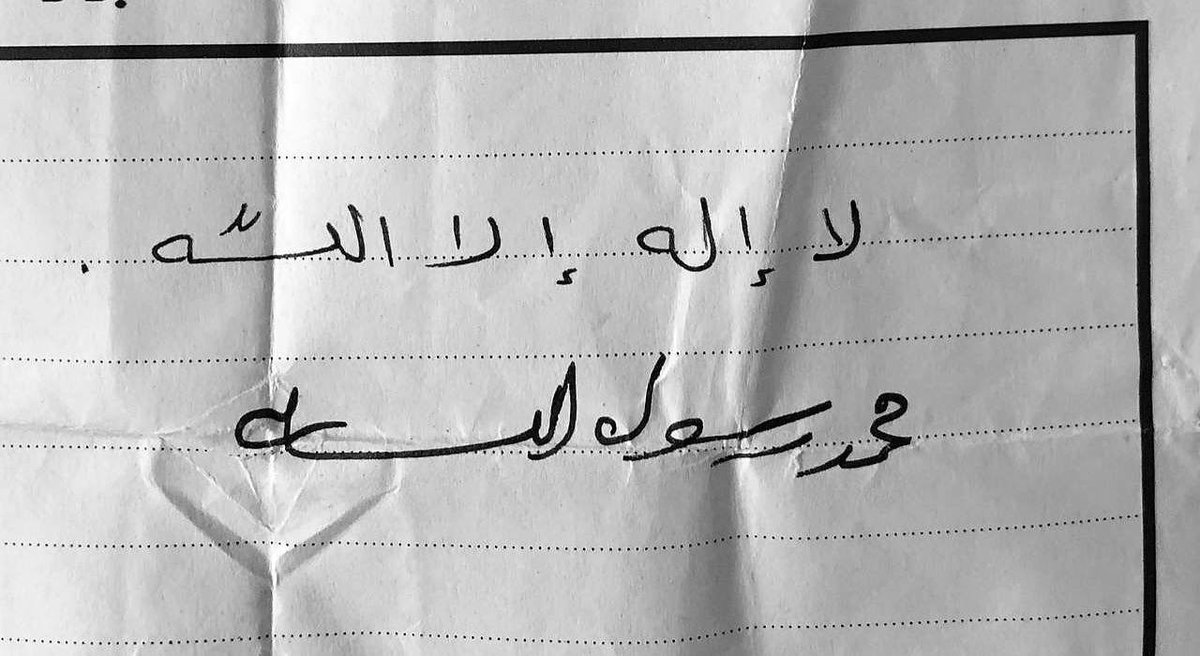 لا إله إلا اللّه .
محمد رسول الله